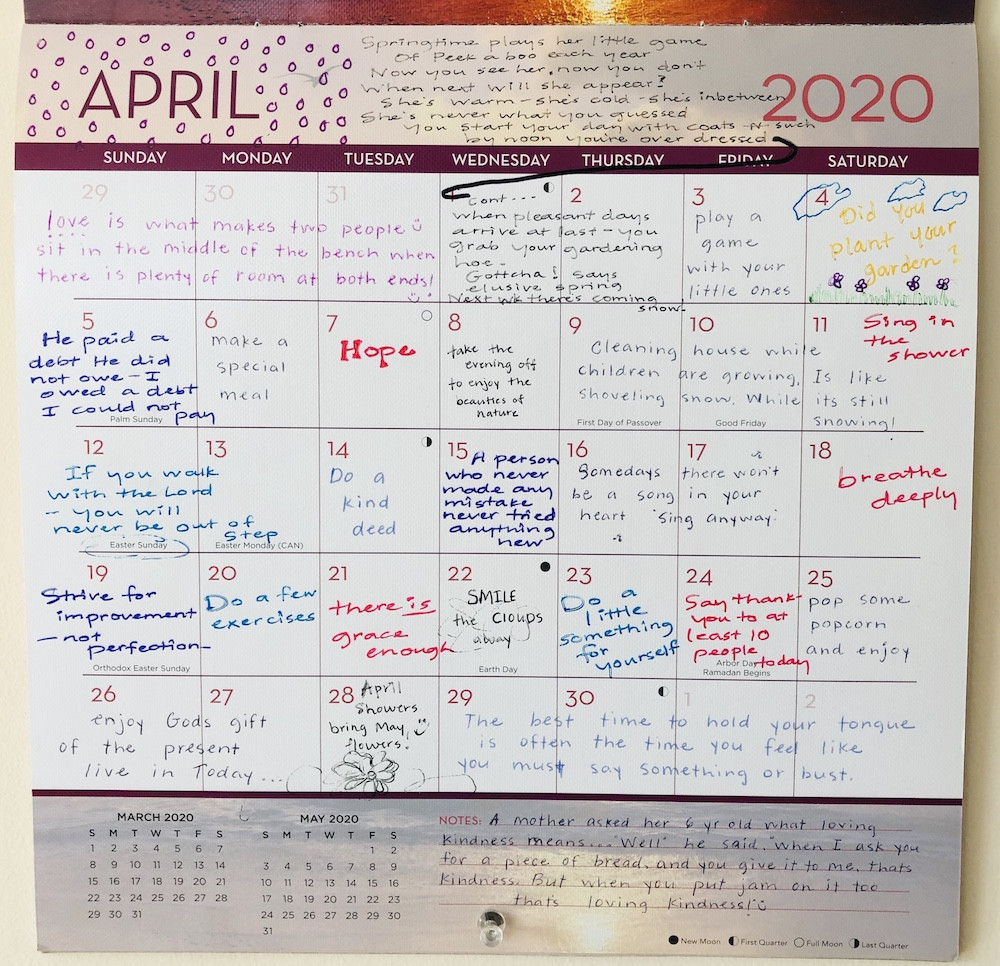 Springtime plays her little game
Of Peek a boo each year
Now you see her, now you don't
When next will she appear?
She's warm - she's cold - she's inbetween
She's never what you guessed
You start your day with coats -n- such
by noon you're over dressed
APRIL
2020
SUNDAY MONDAY TUESDAY WEDNESDAY THURSDAY FRIDAY SATURDAY
29 30 31
love is what makes two people
sit in the middle of the bench when
there is plenty of room at both ends!
1 2
cont...
when pleasant days
arrive at last - you
grab your gardening
hoe.
Gottcha! says
elusive spring
Next wk there's coming
snow.
3
play a
game
with your
little ones
4
Did you
plant your
garden?
5
He paid a
debt He did
not owe - I
owed a debt
I could not pay
Palm Sunday
6
make a
special
meal
7
Hope
8
take the
evening off
to enjoy the
beauties of
nature
9 10 11
Sing in
the
shower
Cleaning house while
children are growing, Is like
shoveling snow. While its still
snowing!
First Day of Passover
Good Friday
12 13
If you walk
with the Lord
- you will
never be out of
step
Easter Sunday
Easter Monday (CAN)
14
Do a
kind
deed
15
A person
who never
made any
mistake
never tried
anything
new
16 17
Somedays there won't
be a song in your
heart "sing anyway."
18
breathe
deeply
19
Strive for
improvement
- not
perfection -
Orthodox Easter Sunday
20
Do a few
exercises
21
there is
grace
enough
22
SMILE
the CLOUDS
away
Earth Day
23
Do a
little
something
for
yourself
24
Say thank-
you to at
least 10
people
today
Arbor Da
Ramadan Begins
25
pop some
popcorn
and enjoy
26 27
enjoy Gods gift
of the present
live in Today...
28
April
Showers
bring May
flowers!
29 30 1 2
The best time to hold your tongue
is often the time you feel like
you must say something or bust.
MARCH 2020
S M T W T F S
1 2 3 4 5 6 7
8 9 10 11 12 13 14
15 16 17 18 19 20 21
22 23 24 25 26 27 28
29 30 31
MAY 2020
S M T W T F S
1 2
3 4 5 6 7 8 9
10 11 12 13 14 15 16
17 18 19 20 21 22 23
24 25 26 27 28 29 30
31
NOTES: A mother asked her 6 yr old what loving
Kindness means... "Well" he said, "when I ask you
for a piece of bread, and you give it to me, thats
Kindness. But when you put jam on it too
thats loving kindness!
New Moon First Quarter Full Moon Last Quarter